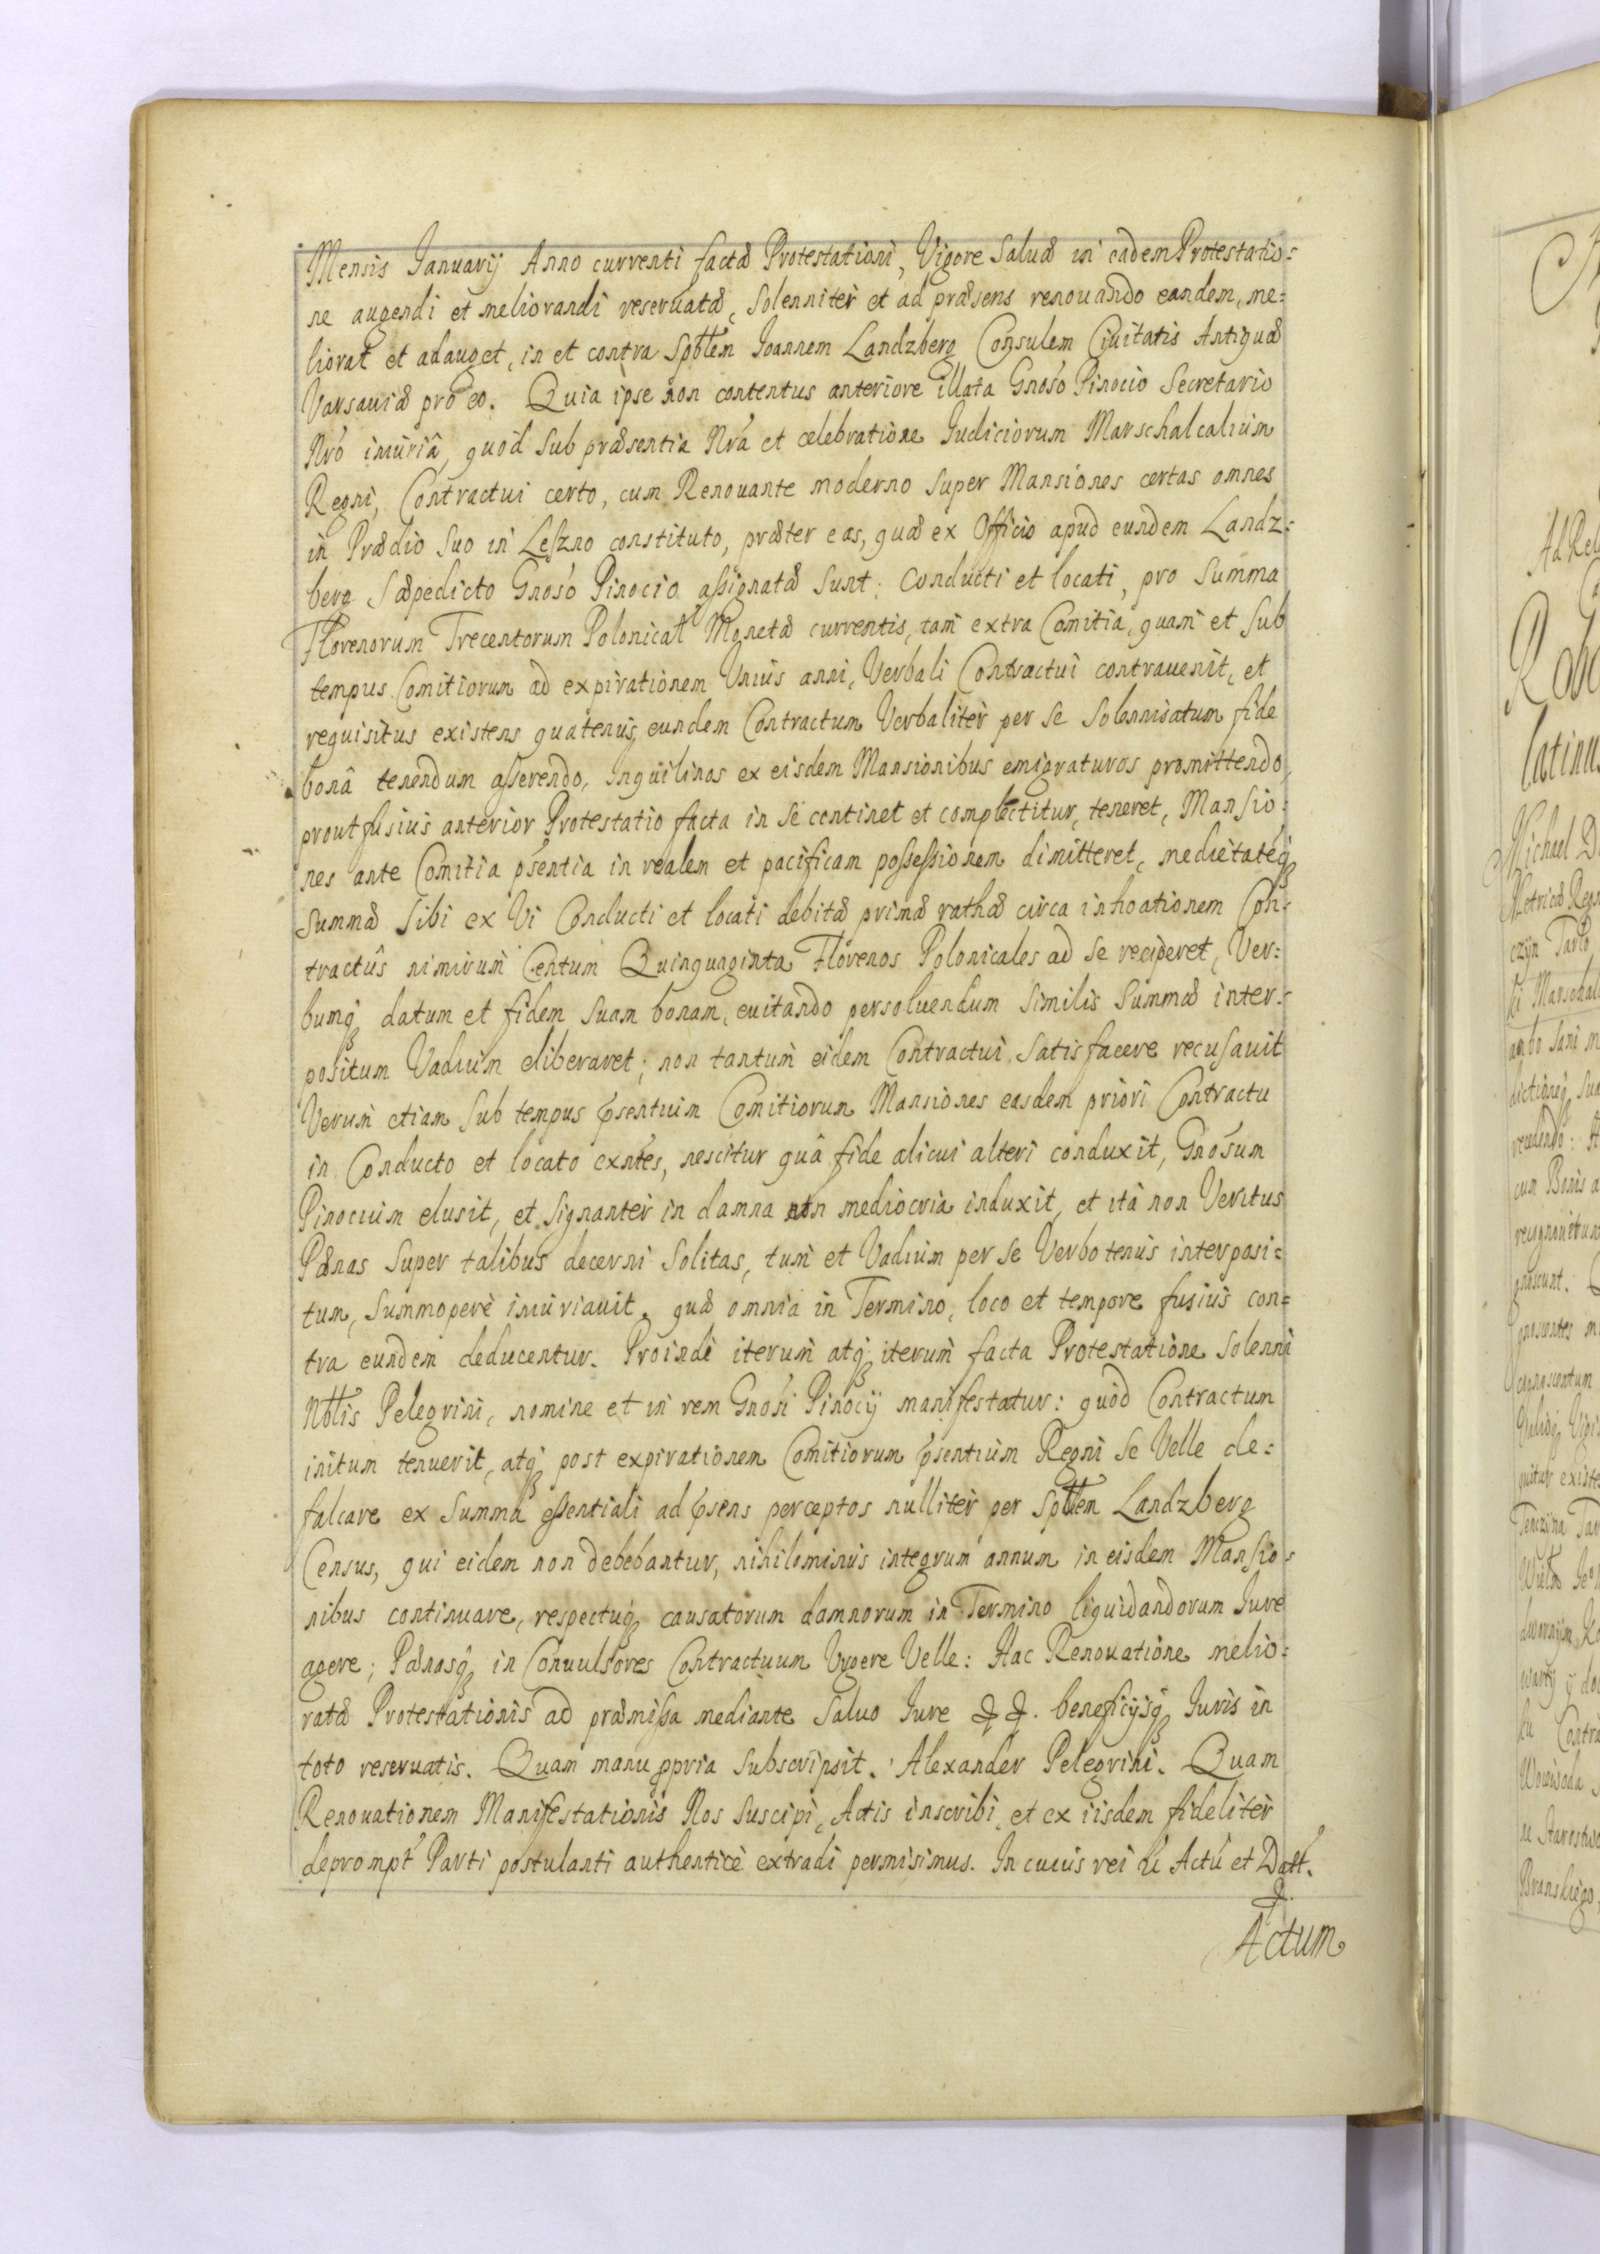 Mensis Januarij Anno currenti factæ Protestationi, Vigore Saluæ in eadem Protestatio=
ne augendi et meliorandi reseruatæ, Solenniter et ad præsens renouando eandem, me=
liorat et adauget, in et contra Spttem Joannem Landzberg Consulem Ciuitatis Antiquæ
Varsauiæ pro eo. Quia ipse non contentus anteriore illata Gnoso Pinocio Secretario
Nro iniuriâ, quod Sub præsentia Nra et celebratione Judiciorum Marschalcalium
Regni, Contractui certo, cum Renouante moderno Super Mansiones certas omnes
in Prædio Suo in Leszno constituto, præter eas, quæ ex Officio apud eundem Landz=
berg Sæpedicto Gnoso Pinocio assignatæ Sunt; Conducti et locati, pro Summa
Florenorum Trecentorum Polonical Monetæ currentis, tam extra Comitia, quam et Sub
tempus Comitiorum ad expirationem Vnius anni, Verbali Contractui contrauenit, et
requisitus existens quatenus eundem Contractum Verbaliter per Se Solennisatum fide
bonâ tenendum asserendo, Inquilinos ex eisdem Mansionibus emigraturos promittendo,
prout fusius anterior Protestatio facta in Se continet et complectitur, teneret, Mansio=
nes ante Comitia psentia in realem et pacificam possessionem dimitteret, medietatéq
Summæ Sibi ex Vi Conducti et locati debitæ primæ rathæ circa inhoationem Con=
tractûs nimirum Centum Quinquaginta Florenos Polonicales ad Se reciperet, Ver=
bumq datum et fidem Suam bonam, euitando persoluendum Similis Summæ inter=
positum Vadium eliberaret; non tantum eidem Contractui Satisfacere recusauit
Verum etiam Sub tempus psentium Comitiorum Mansiones easdem priori Contractu
in Conducto et locato exntes, nescitur quâ fide alicui alteri conduxit, Gnosum
Pinocium elusit, et Signanter in damna non mediocria induxit, et ita non Veritus
Pænas Super talibus decerni Solitas, tum et Vadium per Se Verbotenus interposi=
tum, Summopere iniuriauit. quæ omnia in Termino, loco et tempore fusius con=
tra eundem deducentur. Proindè iterum atq iterum facta Protestatione Solenni
Nbtis Pelegrini, nomine et in rem Gnosi Pinocij manifestatur: quod Contractum
initum tenuerit, atq post expirationem Comitiorum psentium Regni Se Velle de=
falcare ex Summa essentiali ad psens perceptos nulliter per Spttem Landzberg
Census, qui eidem non debebantur, nihilominus integrum annum in eisdem Mansio=
nibus continuare, respectuq causatorum damnorum in Termino liquidandorum Jure
agere; Pænasq in Conuulsores Contractuum Vrgere Velle: Hac Renouatione melio=
ratæ Protestationis ad præmissa mediante Saluo Jure beneficijsq Juris in
toto reseruatis. Quam manu ppria Subscripsit. Alexander Pelegrini. Quam
Renouationem Manifestationis Nos Suscipi, Actis inscribi, et ex iisdem fideliter
deprompt Parti postulanti authenticè extradi permisimus. In cuius rei Actu et Datt.
Actum